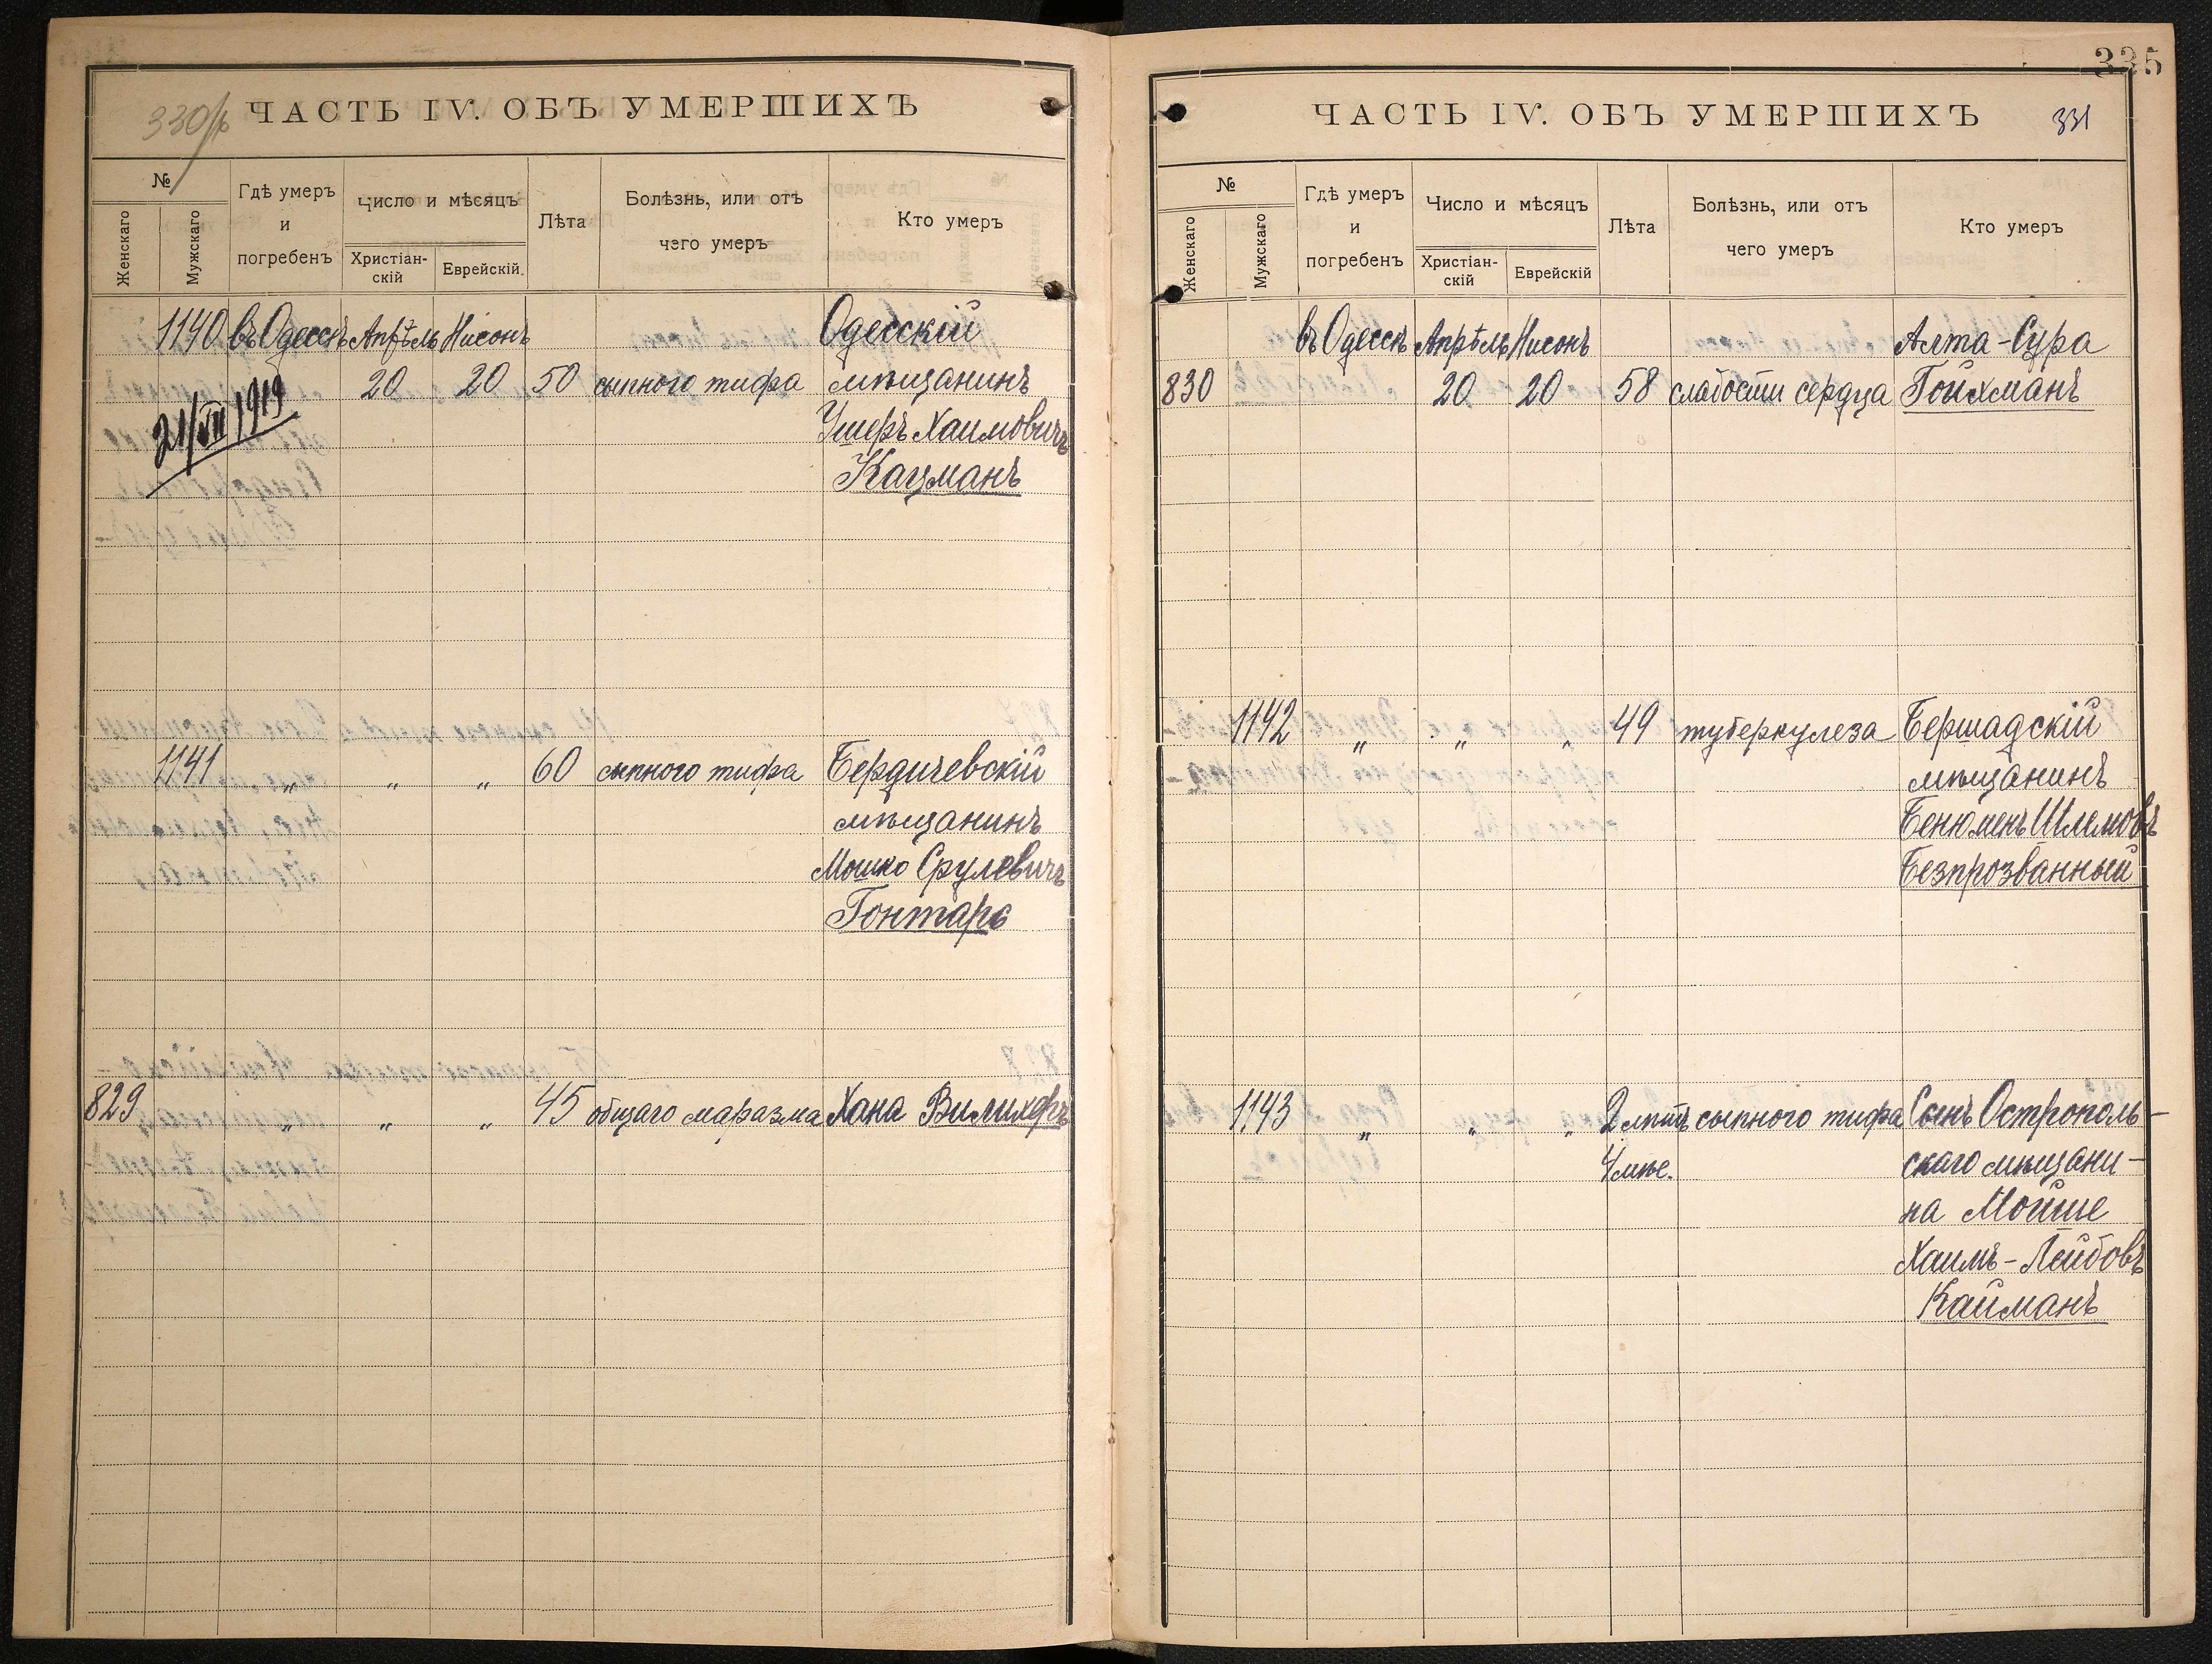 330/б
ЧАСТЬ IV. ОБЪ УМЕРШИХЪ
№
Женскаго
Мужскаго
Гдѣ умеръ
и
погребенъ
Число и мѣсяцъ
Христіан-
скій
Еврейскій
Лѣта
Болѣзнь, или отъ
чего умеръ
Кто умеръ
1140 въ Одессѣ Апрѣль Нисонъ Одесскій
20 20 50 сыпного тифа мѣщанинъ
21/VII 1919
Ушеръ Хаимовичъ
Кацманъ
1141 „ „ „ 60 сыпного тифа Бердичевскій
мѣщанинъ
Мошко Срулевичъ
Гонтарь
829 „ „ „ 45 общаго маразма Хана Вилихеръ
335
ЧАСТЬ IV. ОБЪ УМЕРШИХЪ
331
№
Женскаго
Мужскаго
Гдѣ умеръ
и
погребенъ
Число и мѣсяцъ
Христіан-
скій
Еврейскій
Лѣта
Болѣзнь, или отъ
чего умеръ
Кто умеръ
въ Одессѣ Апрѣль Нисонъ Алта-Сура
830 20 20 58 слабости сердца Гойхманъ
1142 „ „ „ 49 туберкулеза Бершадскій
мѣщанинъ
Бенюменъ Шлемовъ
Безпрозванный
1143 „ „ „ 2 лѣтъ сыпного тифа Сынъ Острополь-
4 мѣс. скаго мѣщани-
на Мойше
Хаимъ-Лейбовъ
Кайманъ